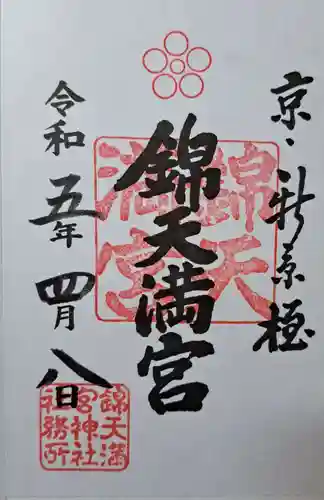 京・新京極
錦天満宮
令和五年四月八日
錦天
満宮
錦天満
宮神社
社務所